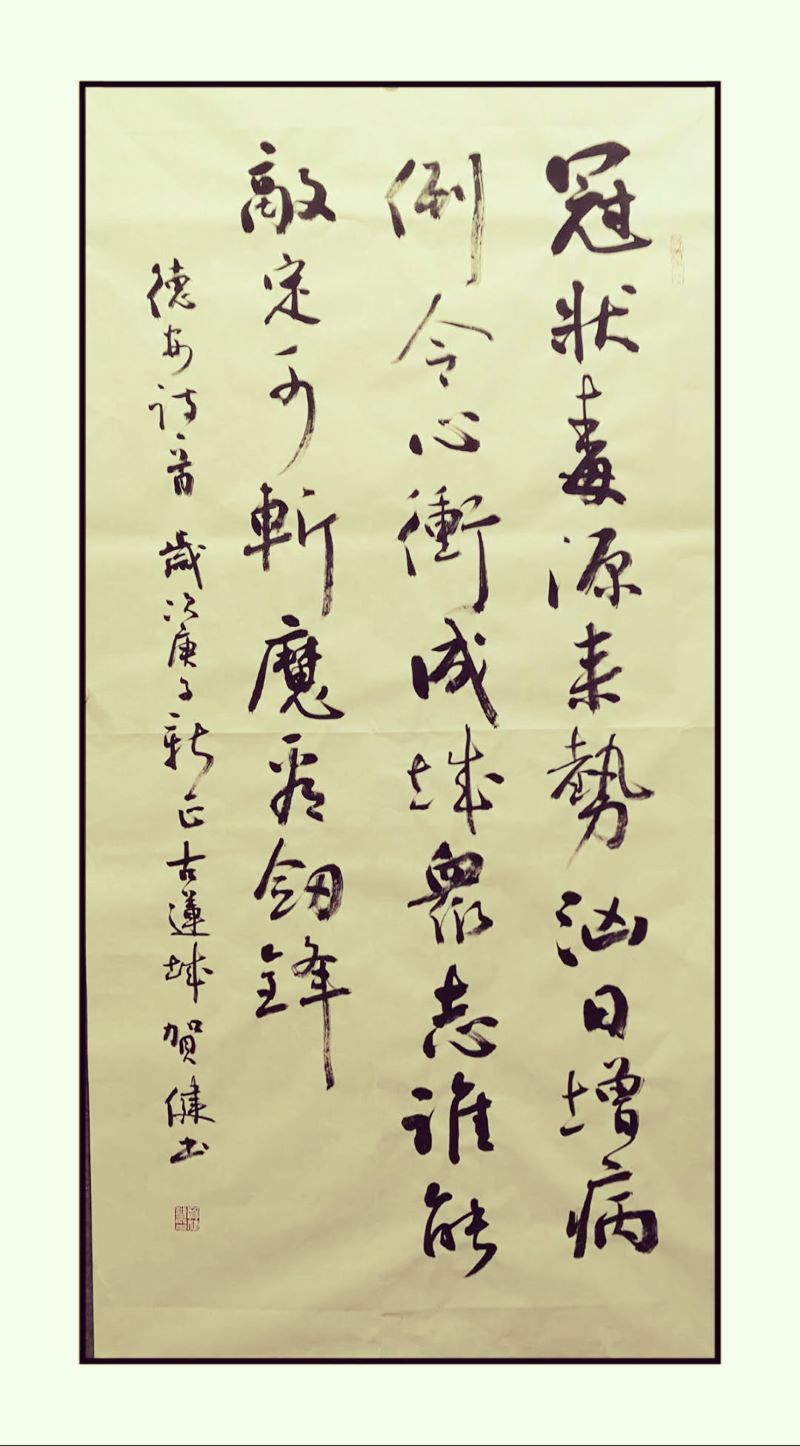 冠狀毒源来勢汹日增病
例令心衝成城衆志誰能
敵定可斬魔看釼鋒
德安诗一首 歲次庚子新正古蓮城賀健书